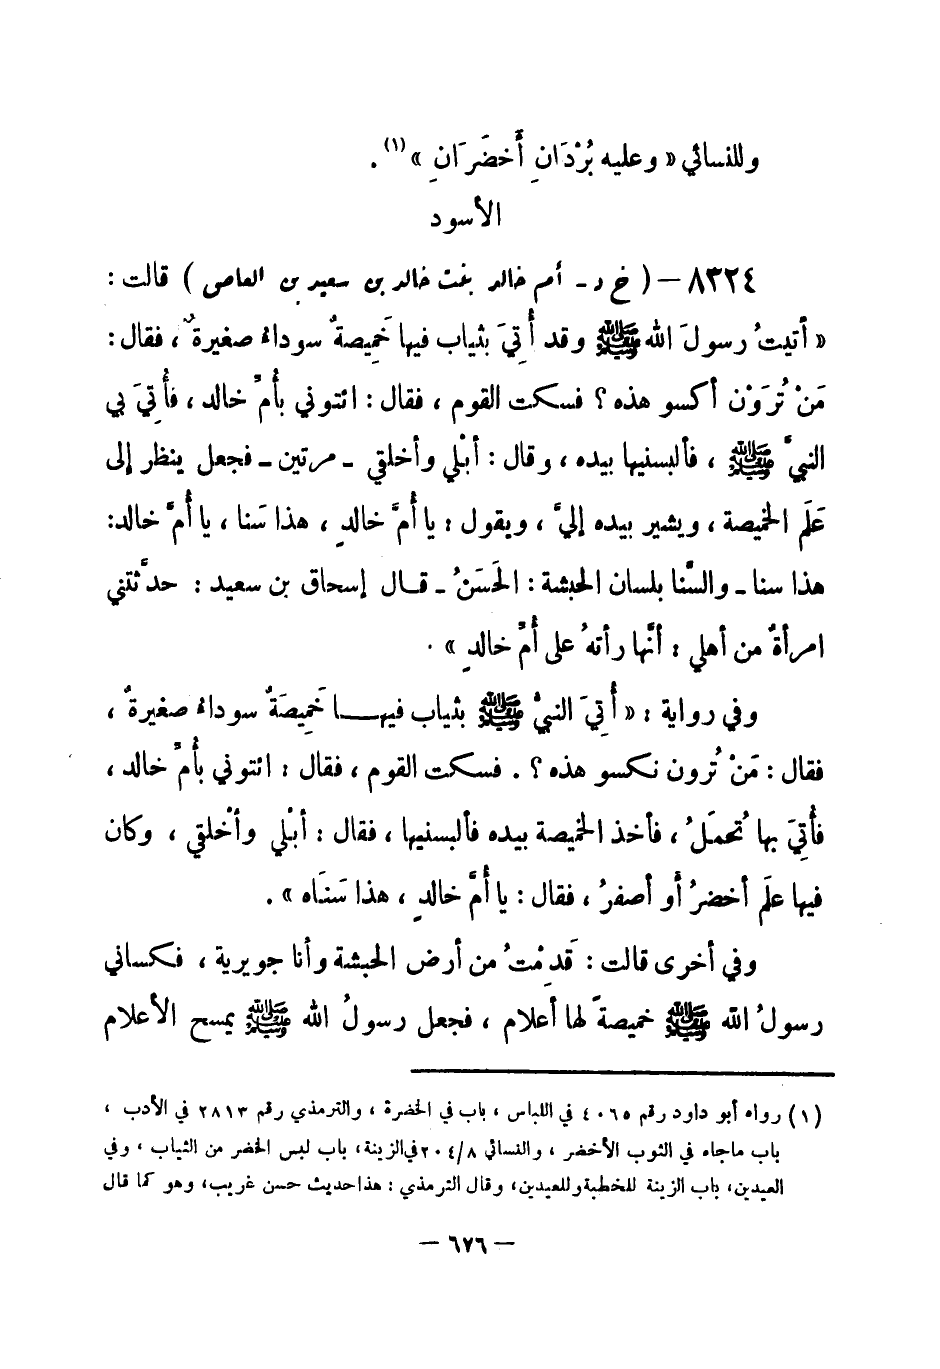 وللنسائي « وعليه بُرْدَانِ أَخضَرَانِ »(١) .
الأسود
٨٣٢٤ – ( خ د ـ أم خالد بنت خالد بن سعيد بن العاص ) قالت :
« أتيتُ رسولَ الله ﷺ وقد أُتِيَ بثياب فيها خَمِيصةٌ سوداءُ صغيرةٌ ، فقال :
مَنْ تُرَوْن أكسو هذه ؟ فسكت القوم ، فقال : ائتوني بأُمِّ خالد ، فأُتِيَ بي
النبيَّ ﷺ ، فألبسنيها بيده ، وقال : أبْلي وأخلقي ـ مرتين ـ فجعل ينظر إلى
عَلَم الخميصة ، ويشير بيده إليَّ ، ويقول : يا أُمَّ خالدٍ ، هذا سَنا ، يا أُمَّ خالد:
هذا سنا ـ والسَّنا بلسان الحبشة : الحَسَنُ ـ قال إسحاق بن سعيد : حدَّثتني
امرأةٌ من أهلي : أنَّها رأتهُ على أُمِّ خالدٍ » .
وفي رواية : « أُتِيَ النبيُّ ﷺ بثياب فيهـا خَمِيصَةٌ سوداءُ صغيرةٌ ،
فقال : مَنْ تُرون نكسو هذه ؟ . فسكت القوم ، فقال : ائتوني بأُمِّ خالد ،
فأُتِيَ بها تُحمَلُ ، فأخذ الخميصة بيده فألبسنيها ، فقال : أبْلي وأخْلقي ، وكان
فيها علَم أخضرُ أو أصفرُ ، فقال : يا أُمَّ خالدٍ ، هذا سَنَاه » .
وفي أخرى قالت : قَدِمْتُ من أرض الحبشة وأنا جويرية ، فكساني
رسولُ الله ﷺ خميصةً لها أعلام ، فجعل رسولُ الله ﷺ يمسح الأعلام
(١) رواه أبو داود رقم ٤٠٦٥ في اللباس ، باب في الخضرة ، والترمذي رقم ٢٨١٣ في الأدب ،
باب ماجاء في الثوب الأخضر ، والنسائي ٢٠٤/٨ في الزينة، باب لبس الخضر من الثياب ، وفي
العيدين، باب الزينة للخطبة وللعيدين، وقال الترمذي : هذا حديث حسن غريب، وهو كما قال
– ٦٧٦ –